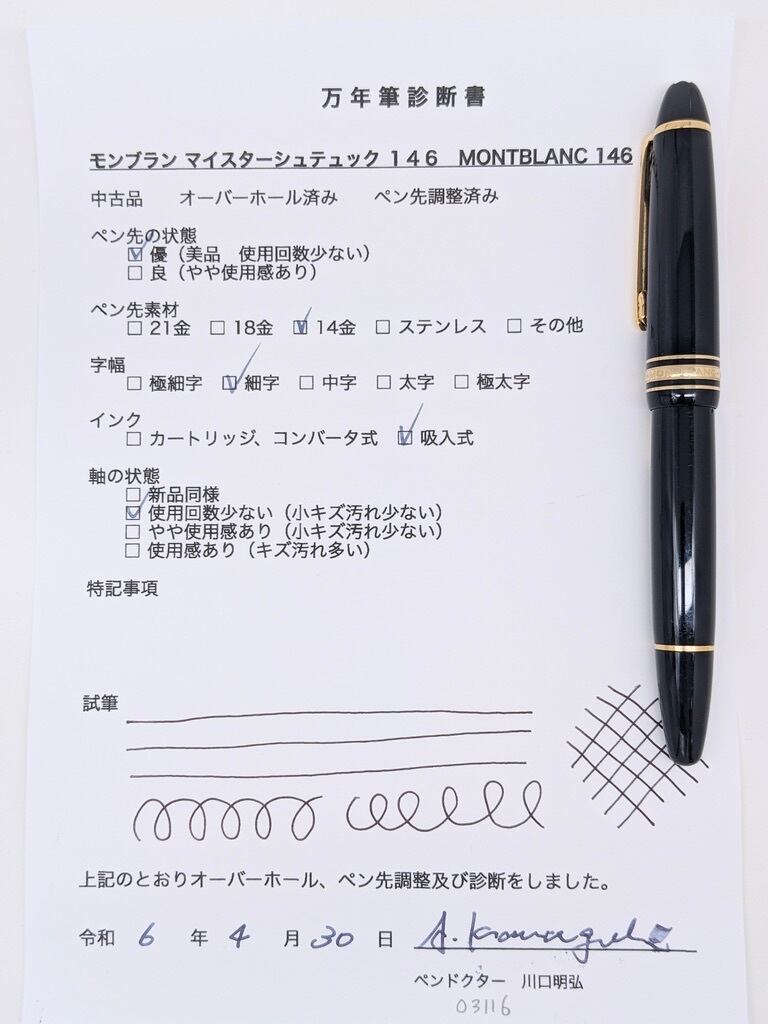 万年筆診断書
モンブラン マイスターシュテュック 146 MONTBLANC 146
中古品 オーバーホール済み ペン先調整済み
ペン先の状態
☑ 優（美品 使用回数少ない）
☐ 良（やや使用感あり）
ペン先素材
☐ 21金 ☐ 18金 ☑ 14金 ☐ ステンレス ☐ その他
字幅
☐ 極細字 ☑ 細字 ☐ 中字 ☐ 太字 ☐ 極太字
インク
☐ カートリッジ、コンバータ式 ☑ 吸入式
軸の状態
☐ 新品同様
☑ 使用回数少ない（小キズ汚れ少ない）
☐ やや使用感あり（小キズ汚れ少ない）
☐ 使用感あり（キズ汚れ多い）
特記事項
試筆
上記のとおりオーバーホール、ペン先調整及び診断をしました。
令和 6 年 4 月 30 日 A. Kawaguchi
ペンドクター 川口明弘
03116